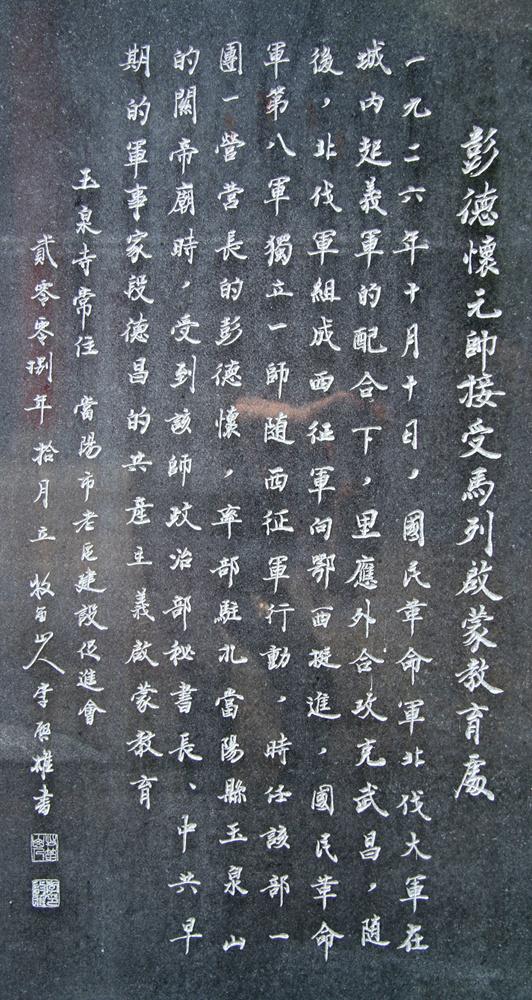 彭德懷元帥接受馬列啟蒙教育處
一九二六年十月十日，國民革命軍北伐大軍在
城内起義軍的配合下，里應外合攻克武昌，隨
後，北伐軍組成西征軍向鄂西挺進，國民革命
軍第八軍獨立一師随西征軍行動，時任該部一
團一營營長的彭德懷，率部駐扎當陽縣玉泉山
的關帝廟時，受到該師政治部秘書長、中共早
期的軍事家段德昌的共產主義啟蒙教育
玉泉寺常住 當陽市老區建設促進會
貳零零捌年拾月立 牧石山人李啟雄書